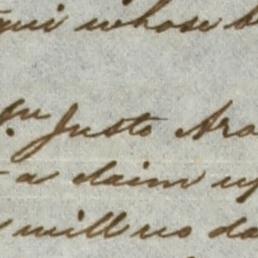 qui whose b
qu Justo Ara
a claim up
will no da